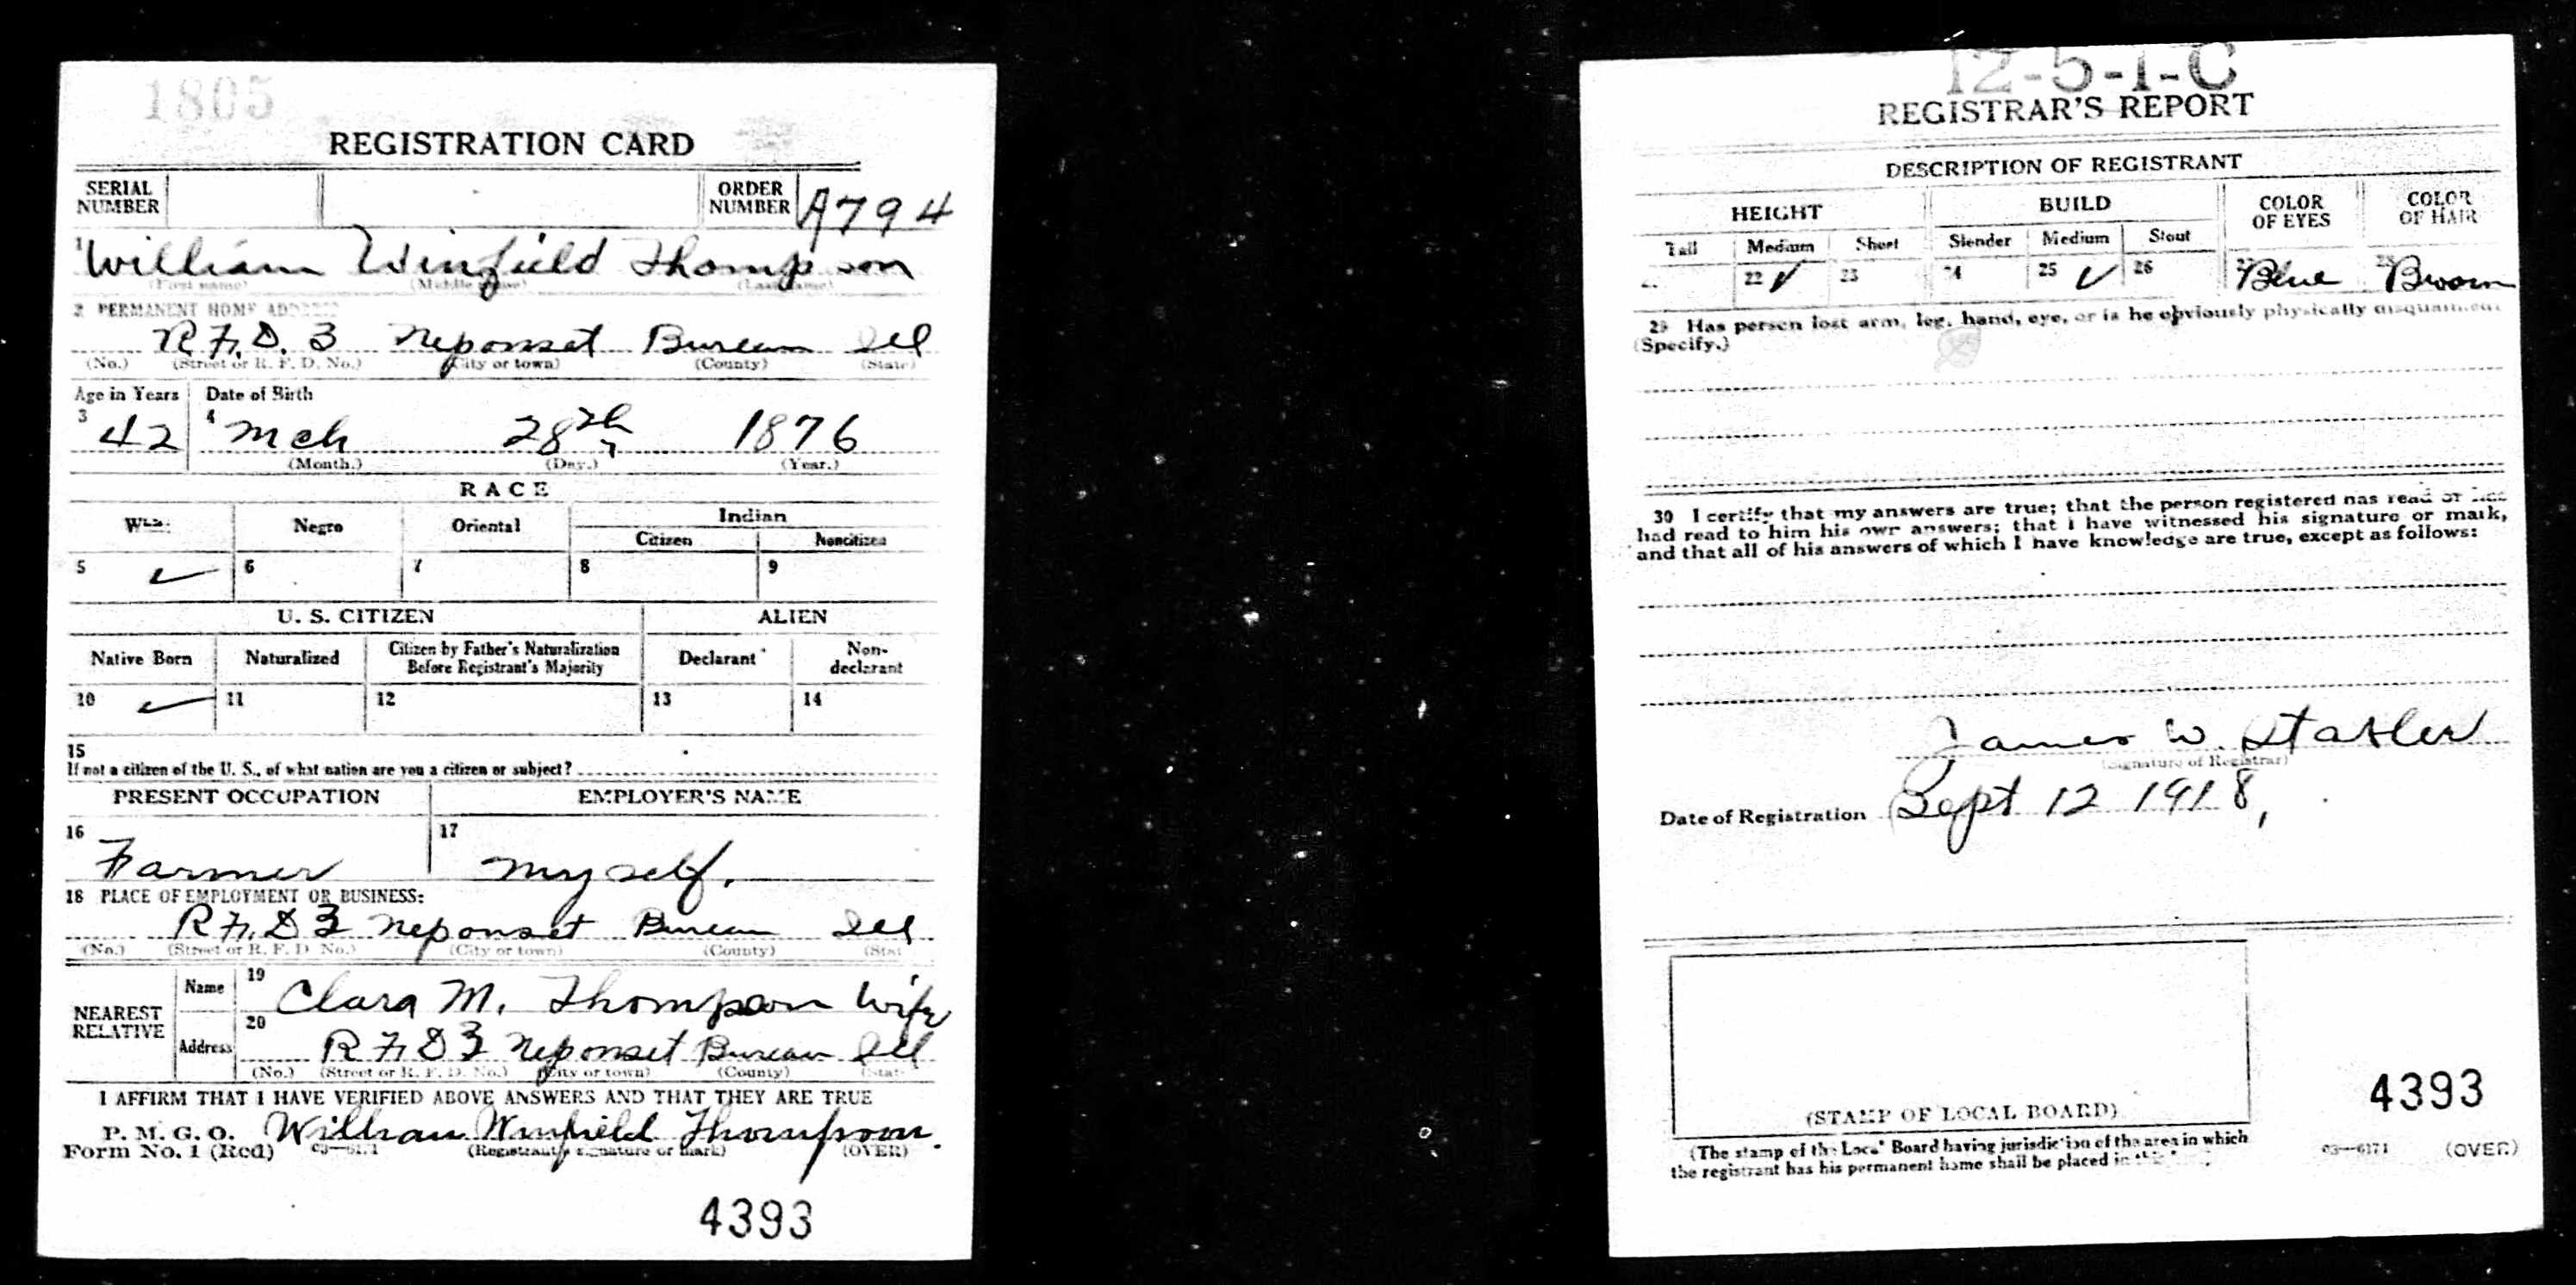 1805
REGISTRATION CARD
SERIAL NUMBER
ORDER NUMBER A794
1 William Winfield Thompson
(First name) (Middle name) (Last name)
2 PERMANENT HOME ADDRESS
R.F.D. 3 Neponset Bureau Ill
(No.) (Street or R. F. D. No.) (City or town) (County) (State)
Age in Years Date of Birth
3 42 4 Mch 28th 1876
(Month.) (Day.) (Year.)
RACE
Negro Oriental Indian
Citizen Noncitizen
5 ✓ 6 7 8 9
U. S. CITIZEN ALIEN
Native Born Naturalized Citizen by Father's Naturalization Before Registrant's Majority Declarant Non-declarant
10 ✓ 11 12 13 14
15
If not a citizen of the U. S., of what nation are you a citizen or subject?
PRESENT OCCUPATION EMPLOYER'S NAME
16 Farmer 17 myself.
18 PLACE OF EMPLOYMENT OR BUSINESS:
R.F.D 3 Neponset Bureau Ill
(No.) (Street or R. F. D. No.) (City or town) (County)
NEAREST RELATIVE
Name 19 Clara M. Thompson Wife
Address 20 R F D 3 Neponset Bureau Ill
(No.) (Street or R. F. D. No.) (City or town) (County)
I AFFIRM THAT I HAVE VERIFIED ABOVE ANSWERS AND THAT THEY ARE TRUE
P. M. G. O.
Form No. 1 (Red) 03—6171 William Winfield Thompson.
(Registrant's signature or mark) (OVER)
4393
12-5-1-C
REGISTRAR'S REPORT
DESCRIPTION OF REGISTRANT
HEIGHT BUILD COLOR OF EYES COLOR OF HAIR
Tall Medium Short Slender Medium Stout
22 ✓ 23 24 25 ✓ 26 27 Blue 28 Brown
29 Has person lost arm, leg, hand, eye, or is he obviously physically disqualified?
(Specify.)
30 I certify that my answers are true; that the person registered has read or has
had read to him his own answers; that I have witnessed his signature or mark,
and that all of his answers of which I have knowledge are true, except as follows:
James W. Stabler
(Signature of Registrar)
Date of Registration Sept 12 1918,
(STAMP OF LOCAL BOARD)
(The stamp of the Local Board having jurisdiction of the area in which
the registrant has his permanent home shall be placed in
4393
03—6171 (OVER)